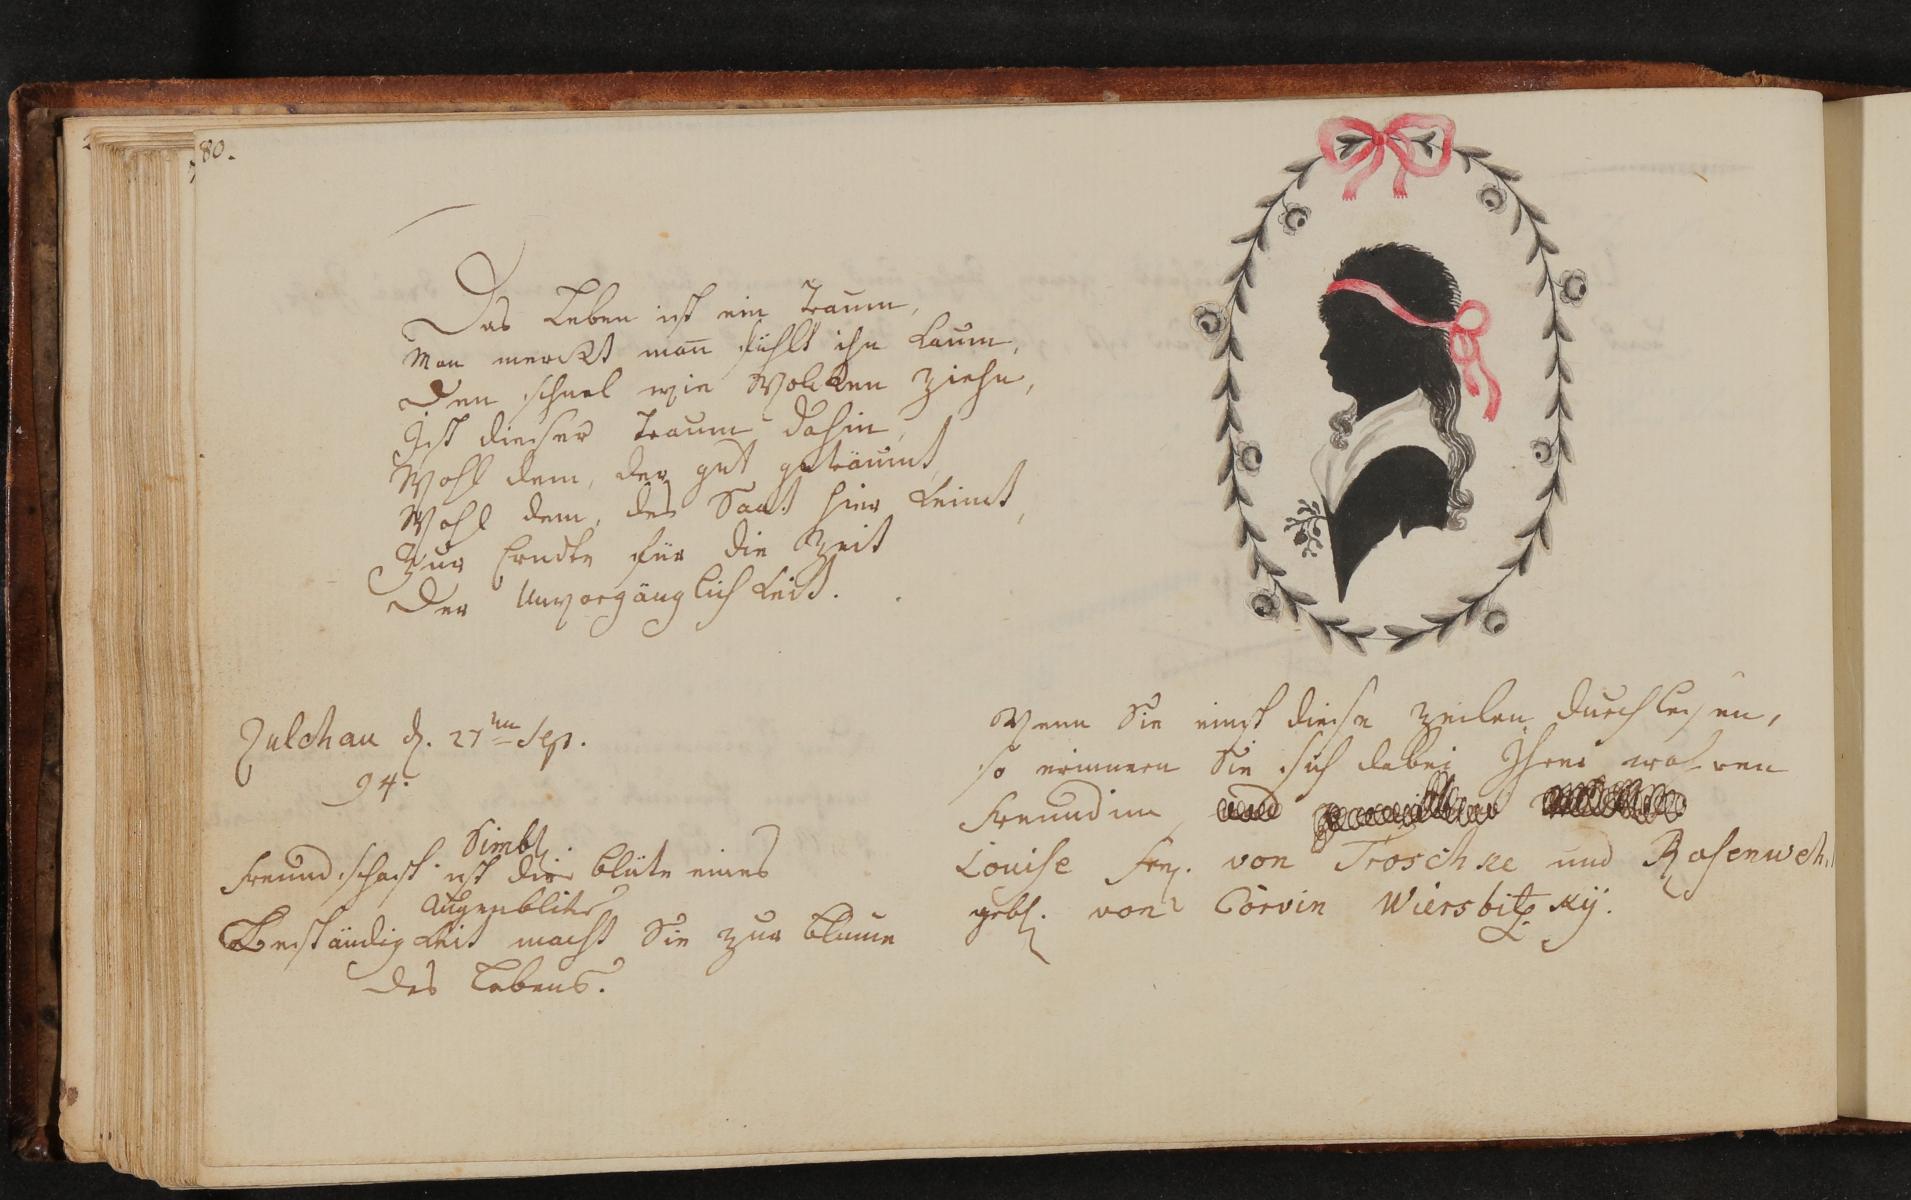 80.
Das Leben ist ein Traum,
Man merckt man fühlt ihn kaum,
Den schnel wie Wolcken ziehn,
Ist dieser Traum dahin,
Wohl dem, der gut geträumt,
Wohl dem, des Saat hier keimt,
Zur Erndte für die Zeit
Der Unvergänglichkeit.
Zulchau d. 27ten Sep.
94.
Simbl.
Freundschaft ist die blüte eines
Augenbliks
Beständigkeit macht Sie zur blume
des Lebens.
Wenn Sie einst diese Zeilen durchlesen,
so erinnern Sie sich dabei Ihrer wahren
Freundin
Louise Frey. von Troschke und Rosenweh.
gebh. von Corvin Wiersbitzky.